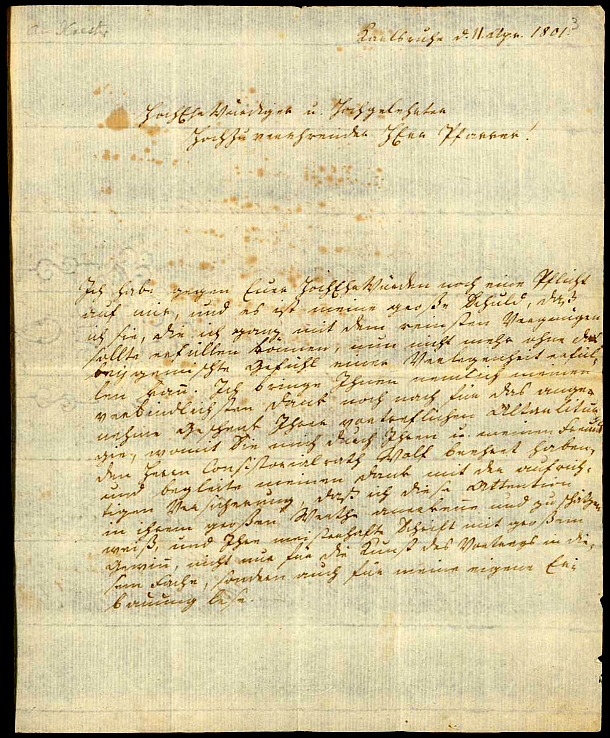 Karlsruhe d. 11. Apr. 1801.
3
HochEhrWürdiger u. Hochgelehrter
Hochzuverehrender HErr Pfarrer!
Ich habe gegen Euer HochEhrWürden noch eine Pflicht
auf mir, und es ist meine große Schuld, daß
ich sie, die ich ganz mit dem reinsten Vergnügen
sollte erfüllen können, nun nicht mehr ohne das
beygemischte Gefühl einer Verlegenheit erfül-
len kan. Ich bringe Ihnen nemlich meinen
verbindlichsten Dank noch nach für das ange-
nehme Geschenk Ihrer vortreflichen Altarlitur-
gie, womit Sie mich durch Ihren u. meinen Freund
den Herrn Consistorialrath Wolf beehret haben,
und begleite meinen Dank mit der aufrich-
tigen Versicherung, daß ich diese Attention
in ihrem großen Werthe anerkenne und zu schätzen
weiß, und Ihre meisterhafte Schrift mit großem
Gewin, nicht nur für die Kunst des Vortrags in die-
sem Fache, sondern auch für meine eigene Er-
bauung lese.